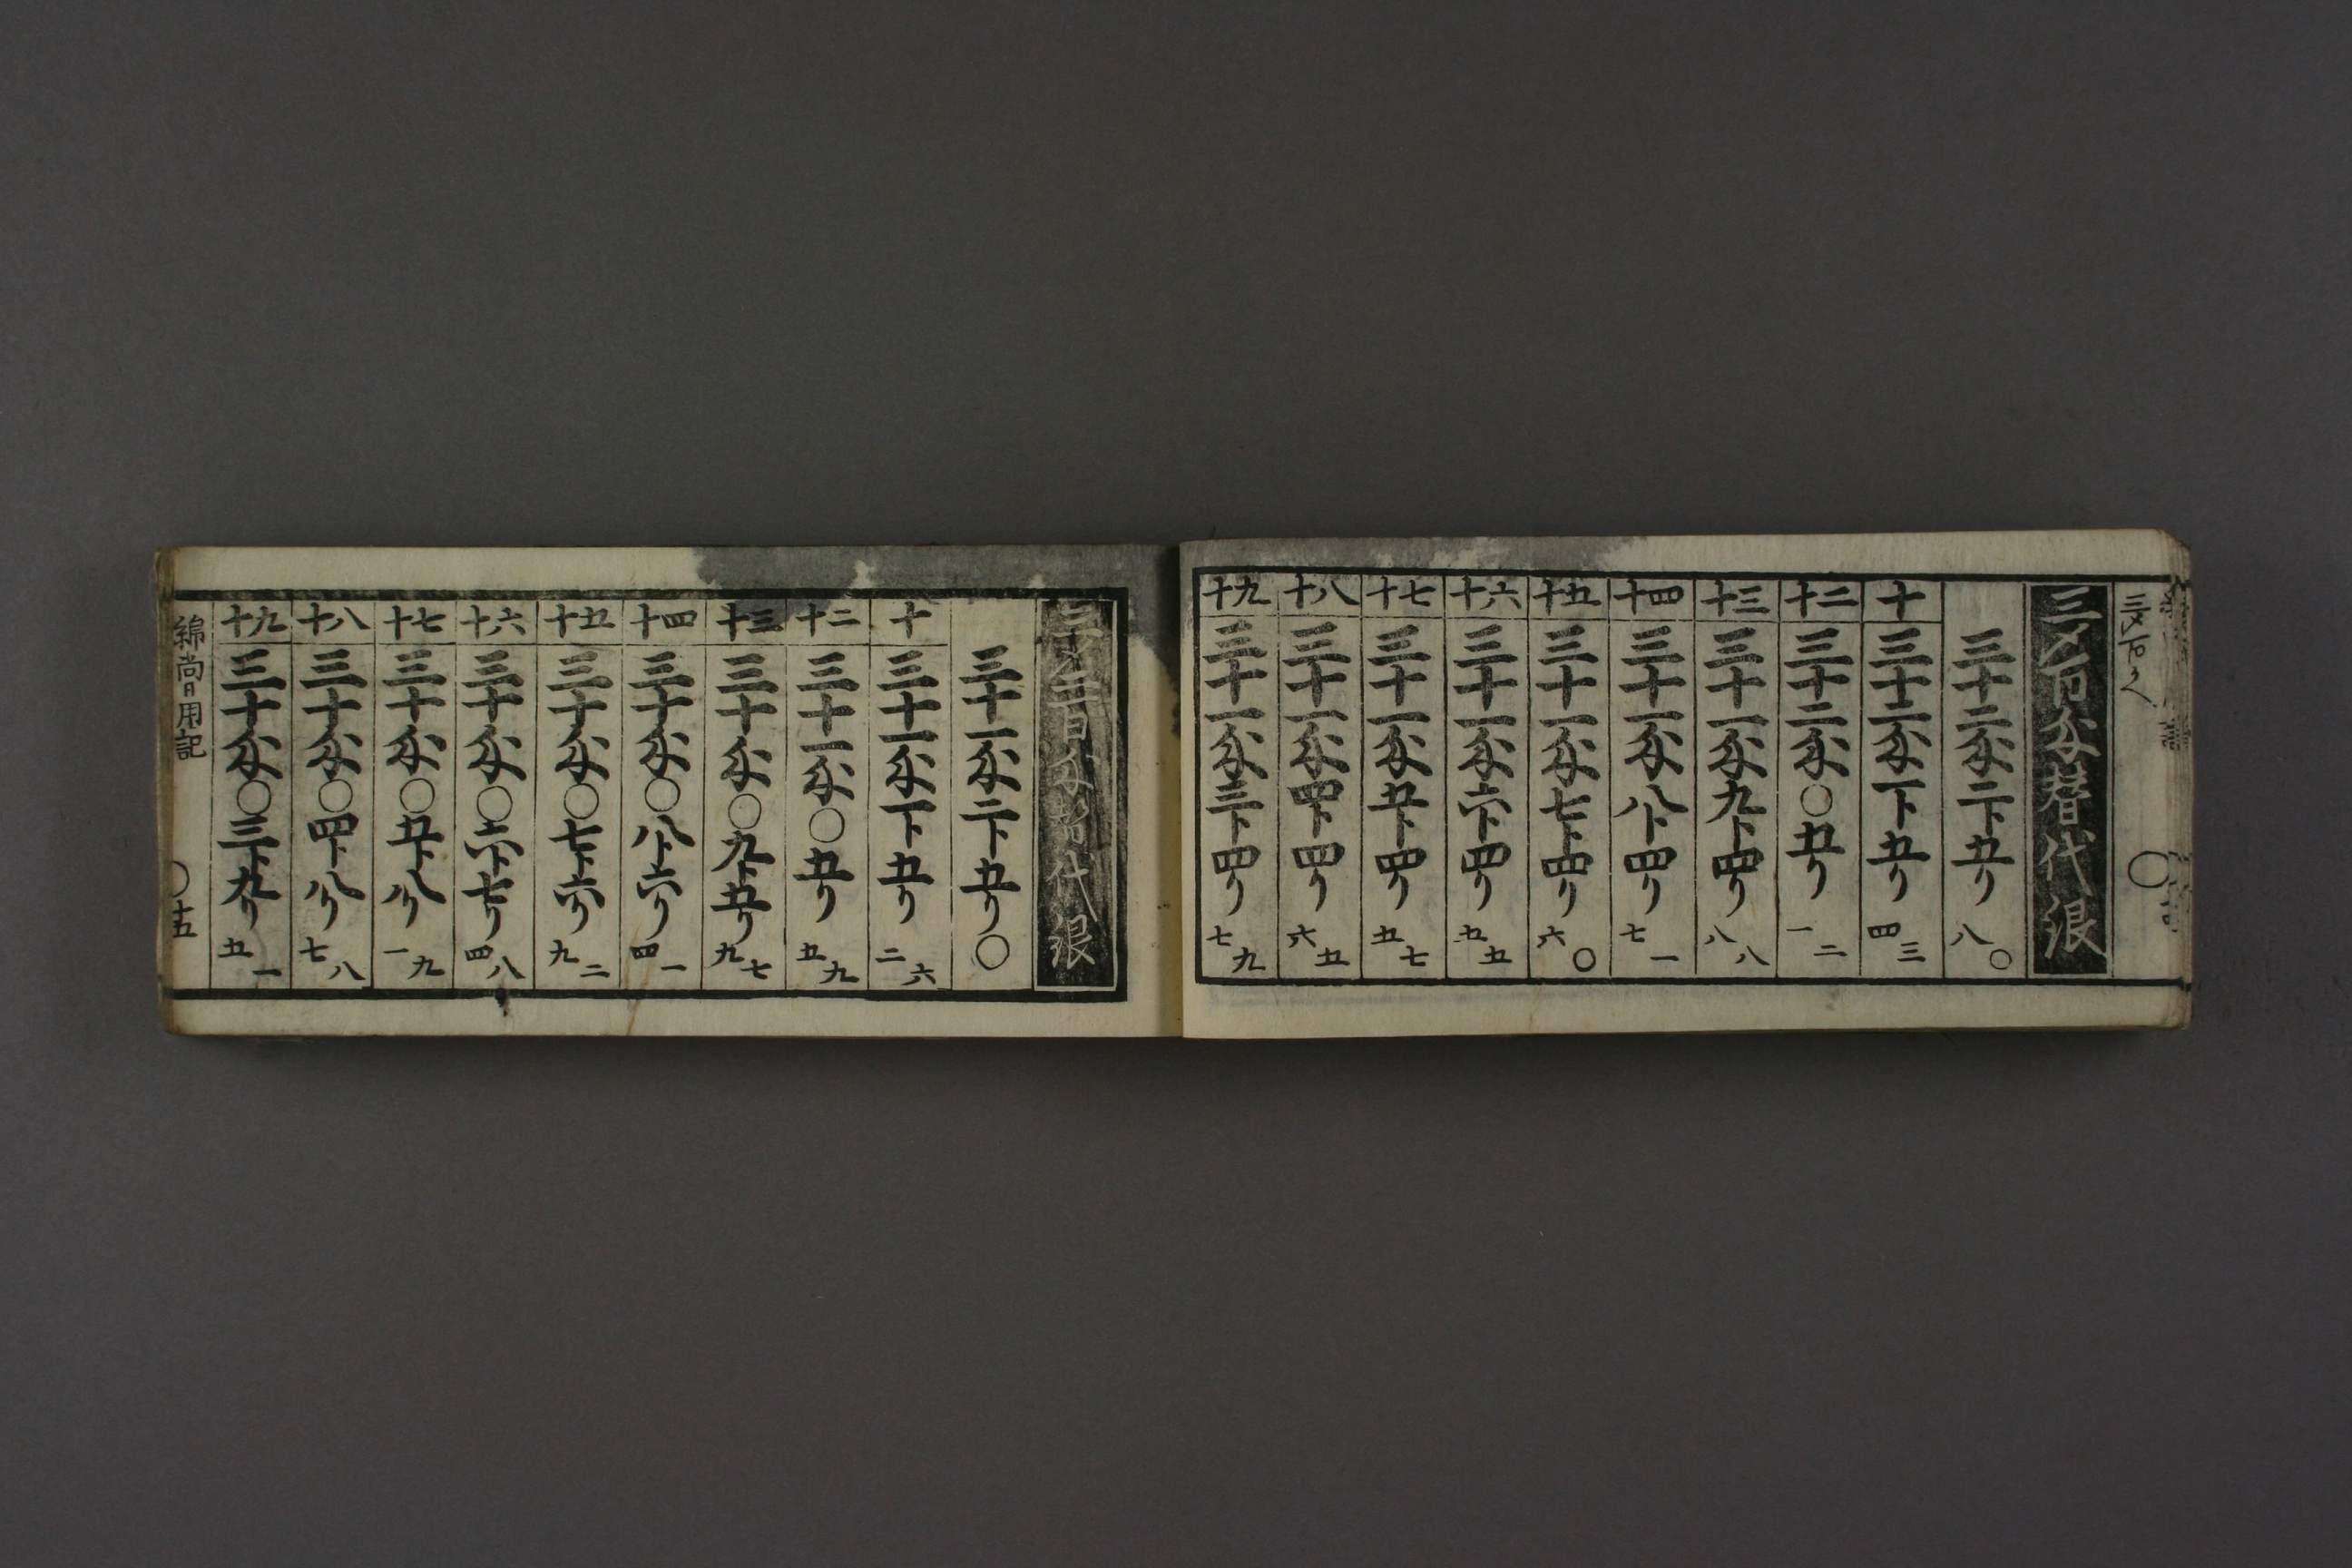 三〆百匁替代銀
三十二匁二卜五リ八〇
十 三十二匁一卜五リ四三
二十 三十二匁〇五リ一二
三十 三十一匁九卜四リ八八
四十 三十一匁八卜四リ七一
五十 三十一匁七卜四リ六〇
六十 三十一匁六卜四リ五五
七十 三十一匁五卜四リ五七
八十 三十一匁四卜四リ六五
九十 三十一匁三卜四リ七九
三〆二百匁替代銀
三十一匁二卜五リ〇
十 三十一匁一卜五リ二六
二十 三十一匁〇五リ五九
三十 三十匁〇九卜五リ九七
四十 三十匁〇八卜六リ四一
五十 三十匁〇七卜六リ九二
六十 三十匁〇六卜七リ四八
七十 三十匁〇五卜八リ一九
八十 三十匁〇四卜八リ七八
九十 三十匁〇三卜九リ五一
綿尚日用記 〇十五